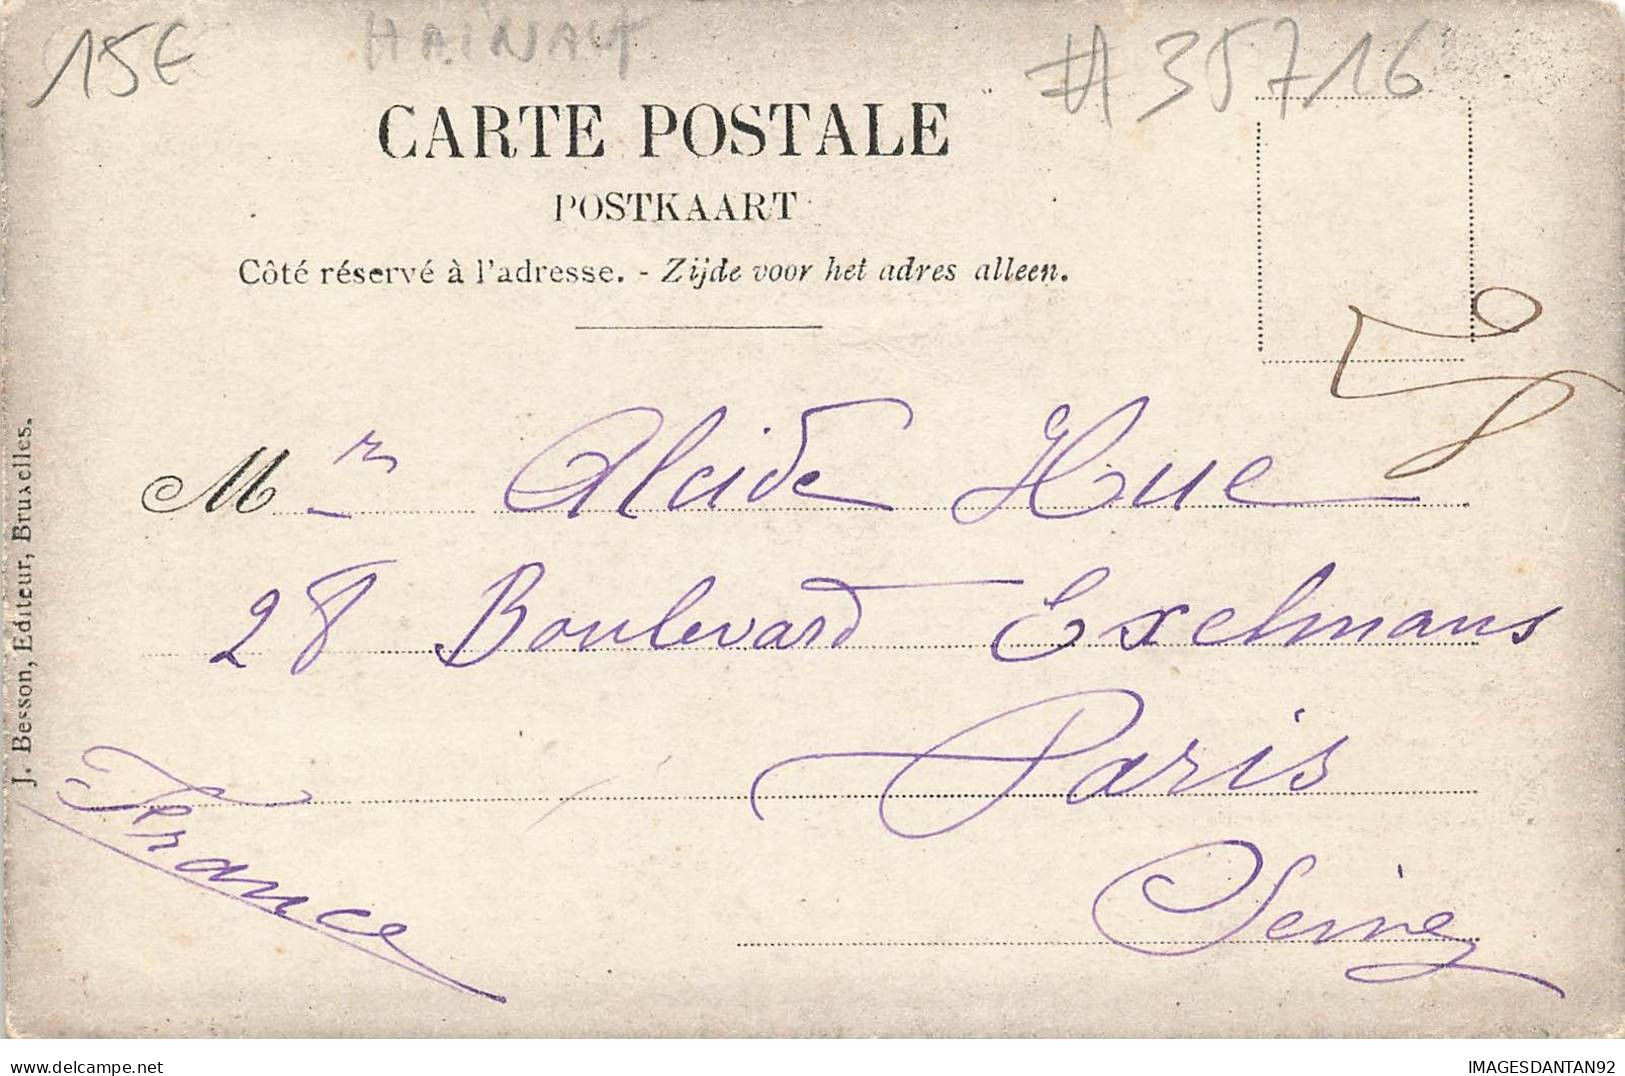 15€
HAINAUT
#35716
CARTE POSTALE
POSTKAART
Côté réservé à l'adresse. - Zijde voor het adres alleen.
Mr Alcide Hue
28 Boulevard Exelmans
Paris
Seine
France
J. Besson, Editeur, Bruxelles.
IMAGESDANTAN92